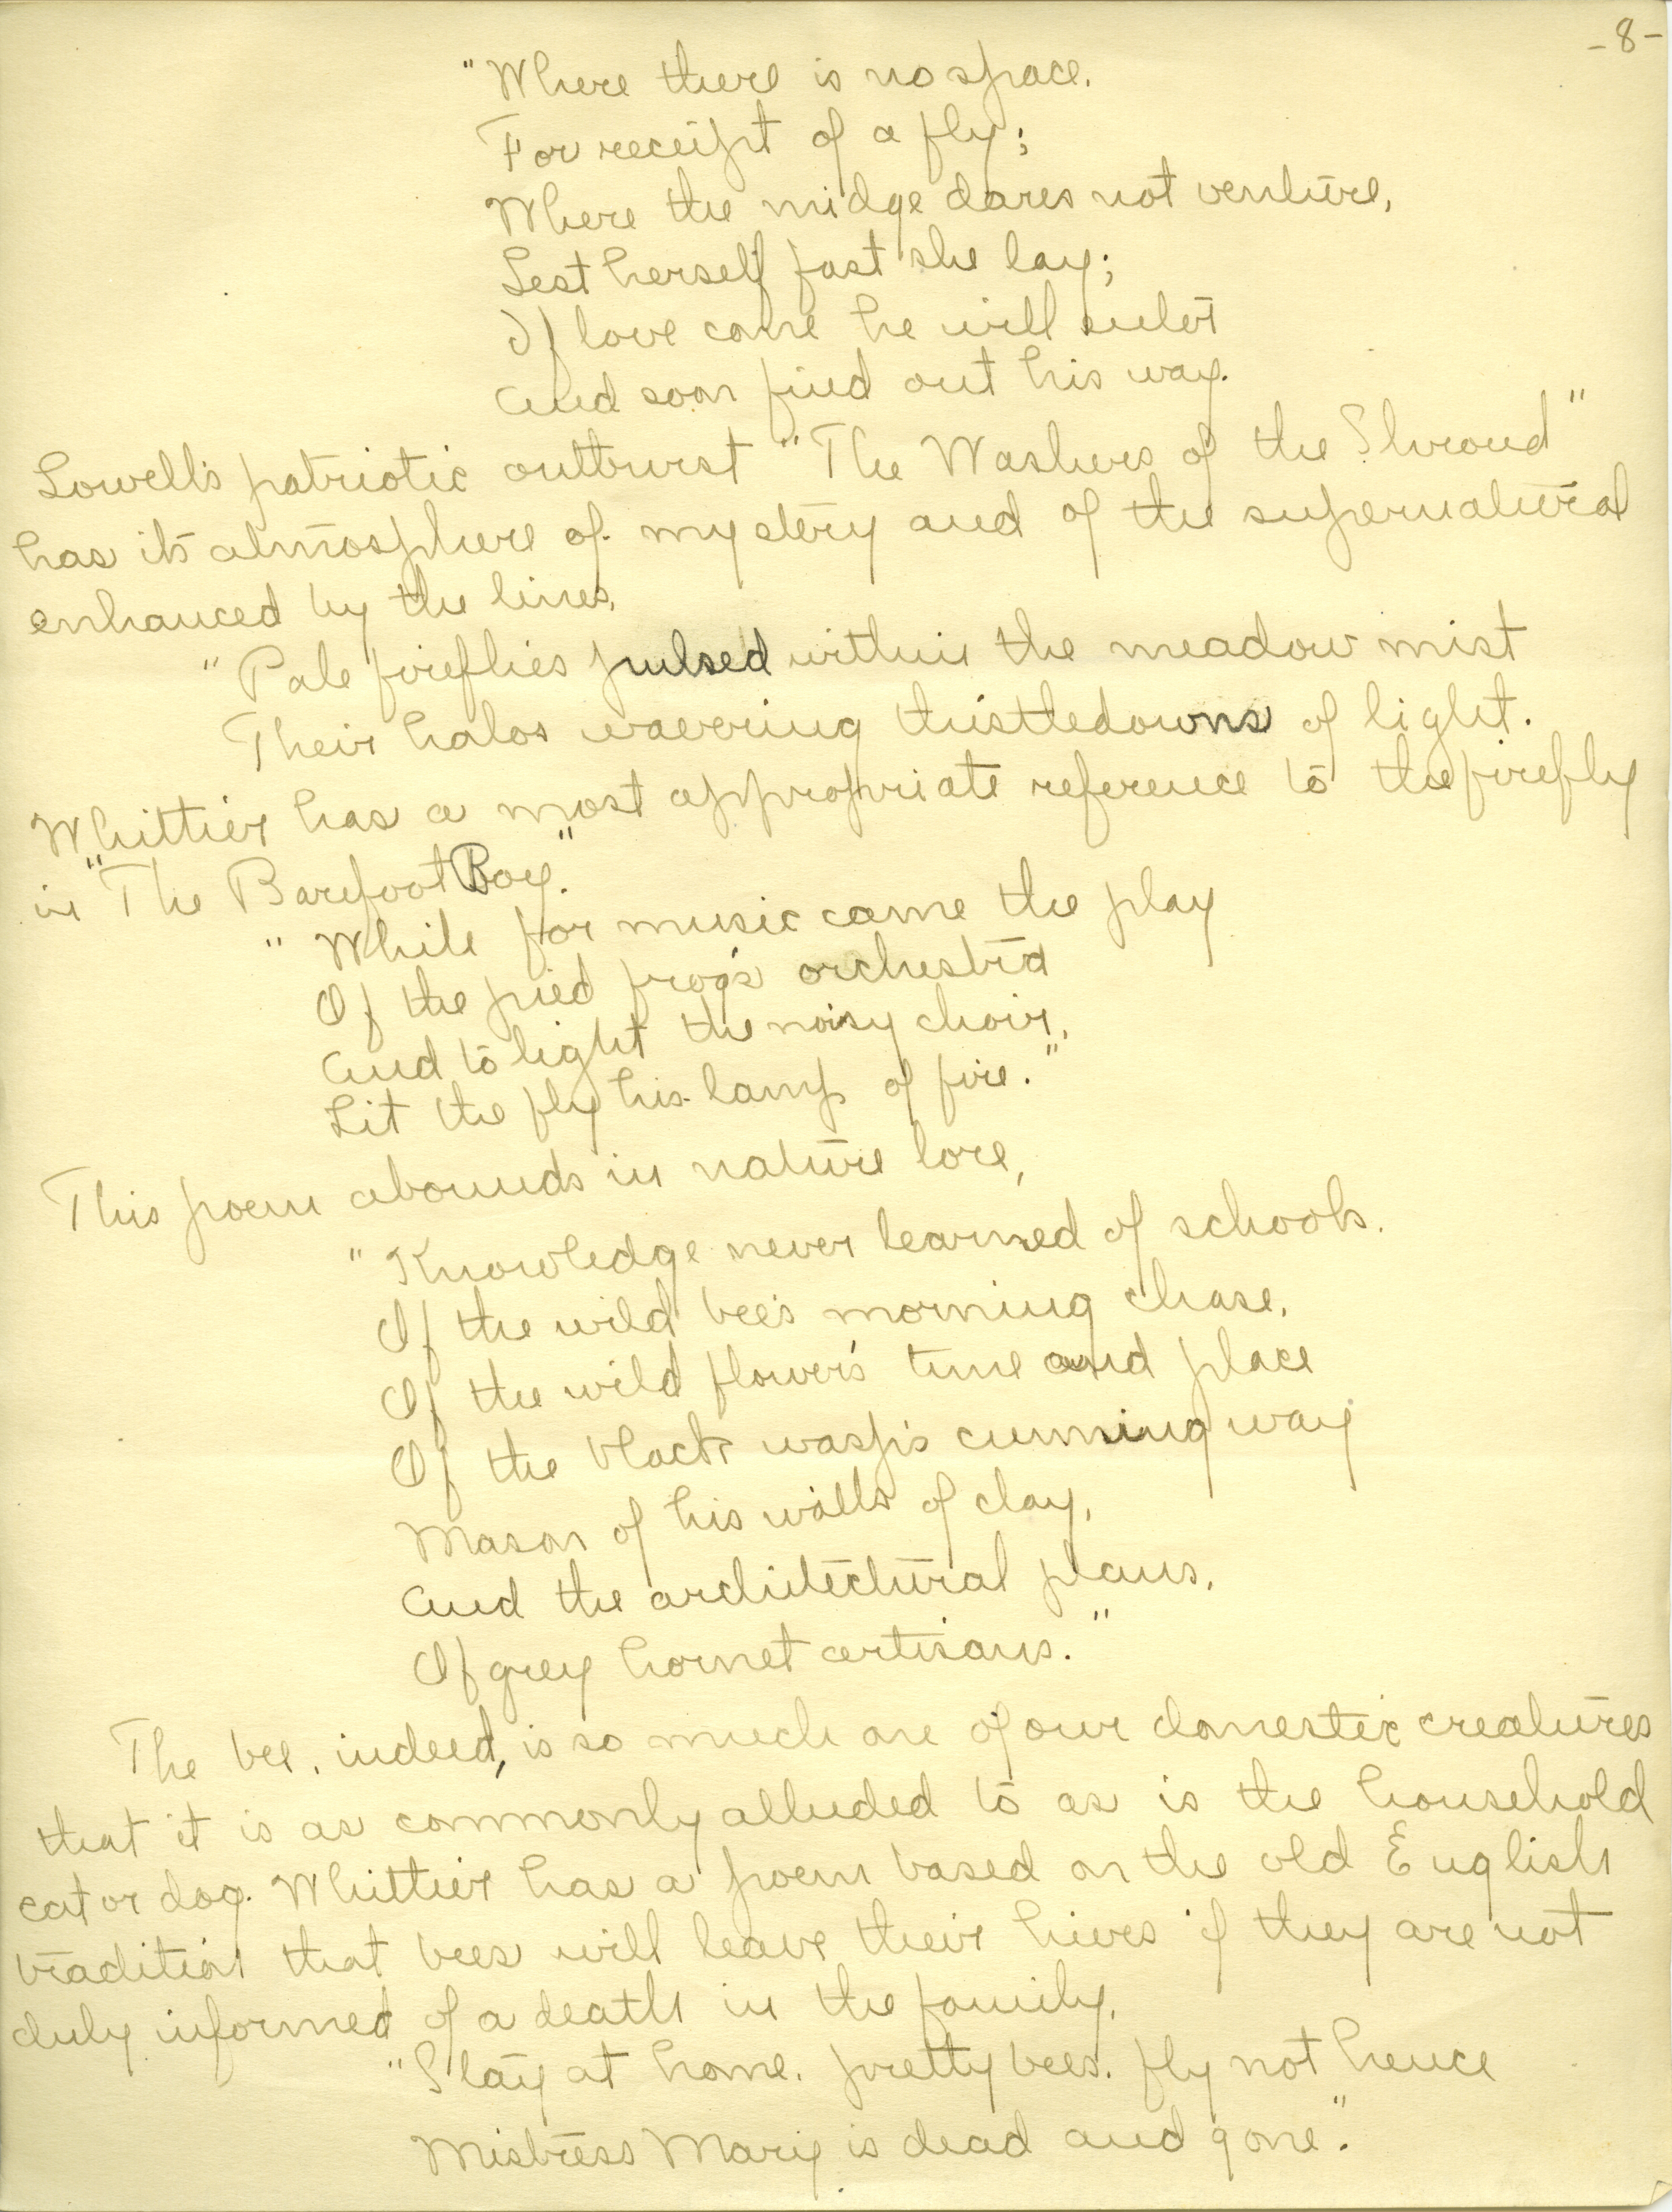 -8-
"Where there is no space.
For receipt of a fly;
Where the midge dares not venture,
Lest herself fast she lay;
If love come he will enter
And soon find out his way.
Lowell's patriotic outburst "The Washers of the Shroud"
has its atmosphere of mystery and of the supernatural
enhanced by the lines,
"Pale fireflies pulsed within the meadow mist
Their halos wavering thistledowns of light.
Whittier has a most appropriate reference to the firefly
in "The Barefoot Boy."
"While for music came the play
Of the pied frog's orchestra
And to light the noisy choir,
Lit the fly his lamp of fire."
This poem abounds in nature lore,
"Knowledge never learned of schools.
Of the wild bee's morning chase,
Of the wild flower's time and place
Of the black wasp's cunning way
Mason of his walls of clay,
And the architectural plans,
Of grey hornet artisans."
The bee, indeed, is so much one of our domestic creatures
that it is as commonly alluded to as is the household
cat or dog. Whittier has a poem based on the old English
tradition that bees will leave their hives if they are not
duly informed of a death in the family.
"Stay at home, pretty bees. fly not hence
Mistress Mary is dead and gone."